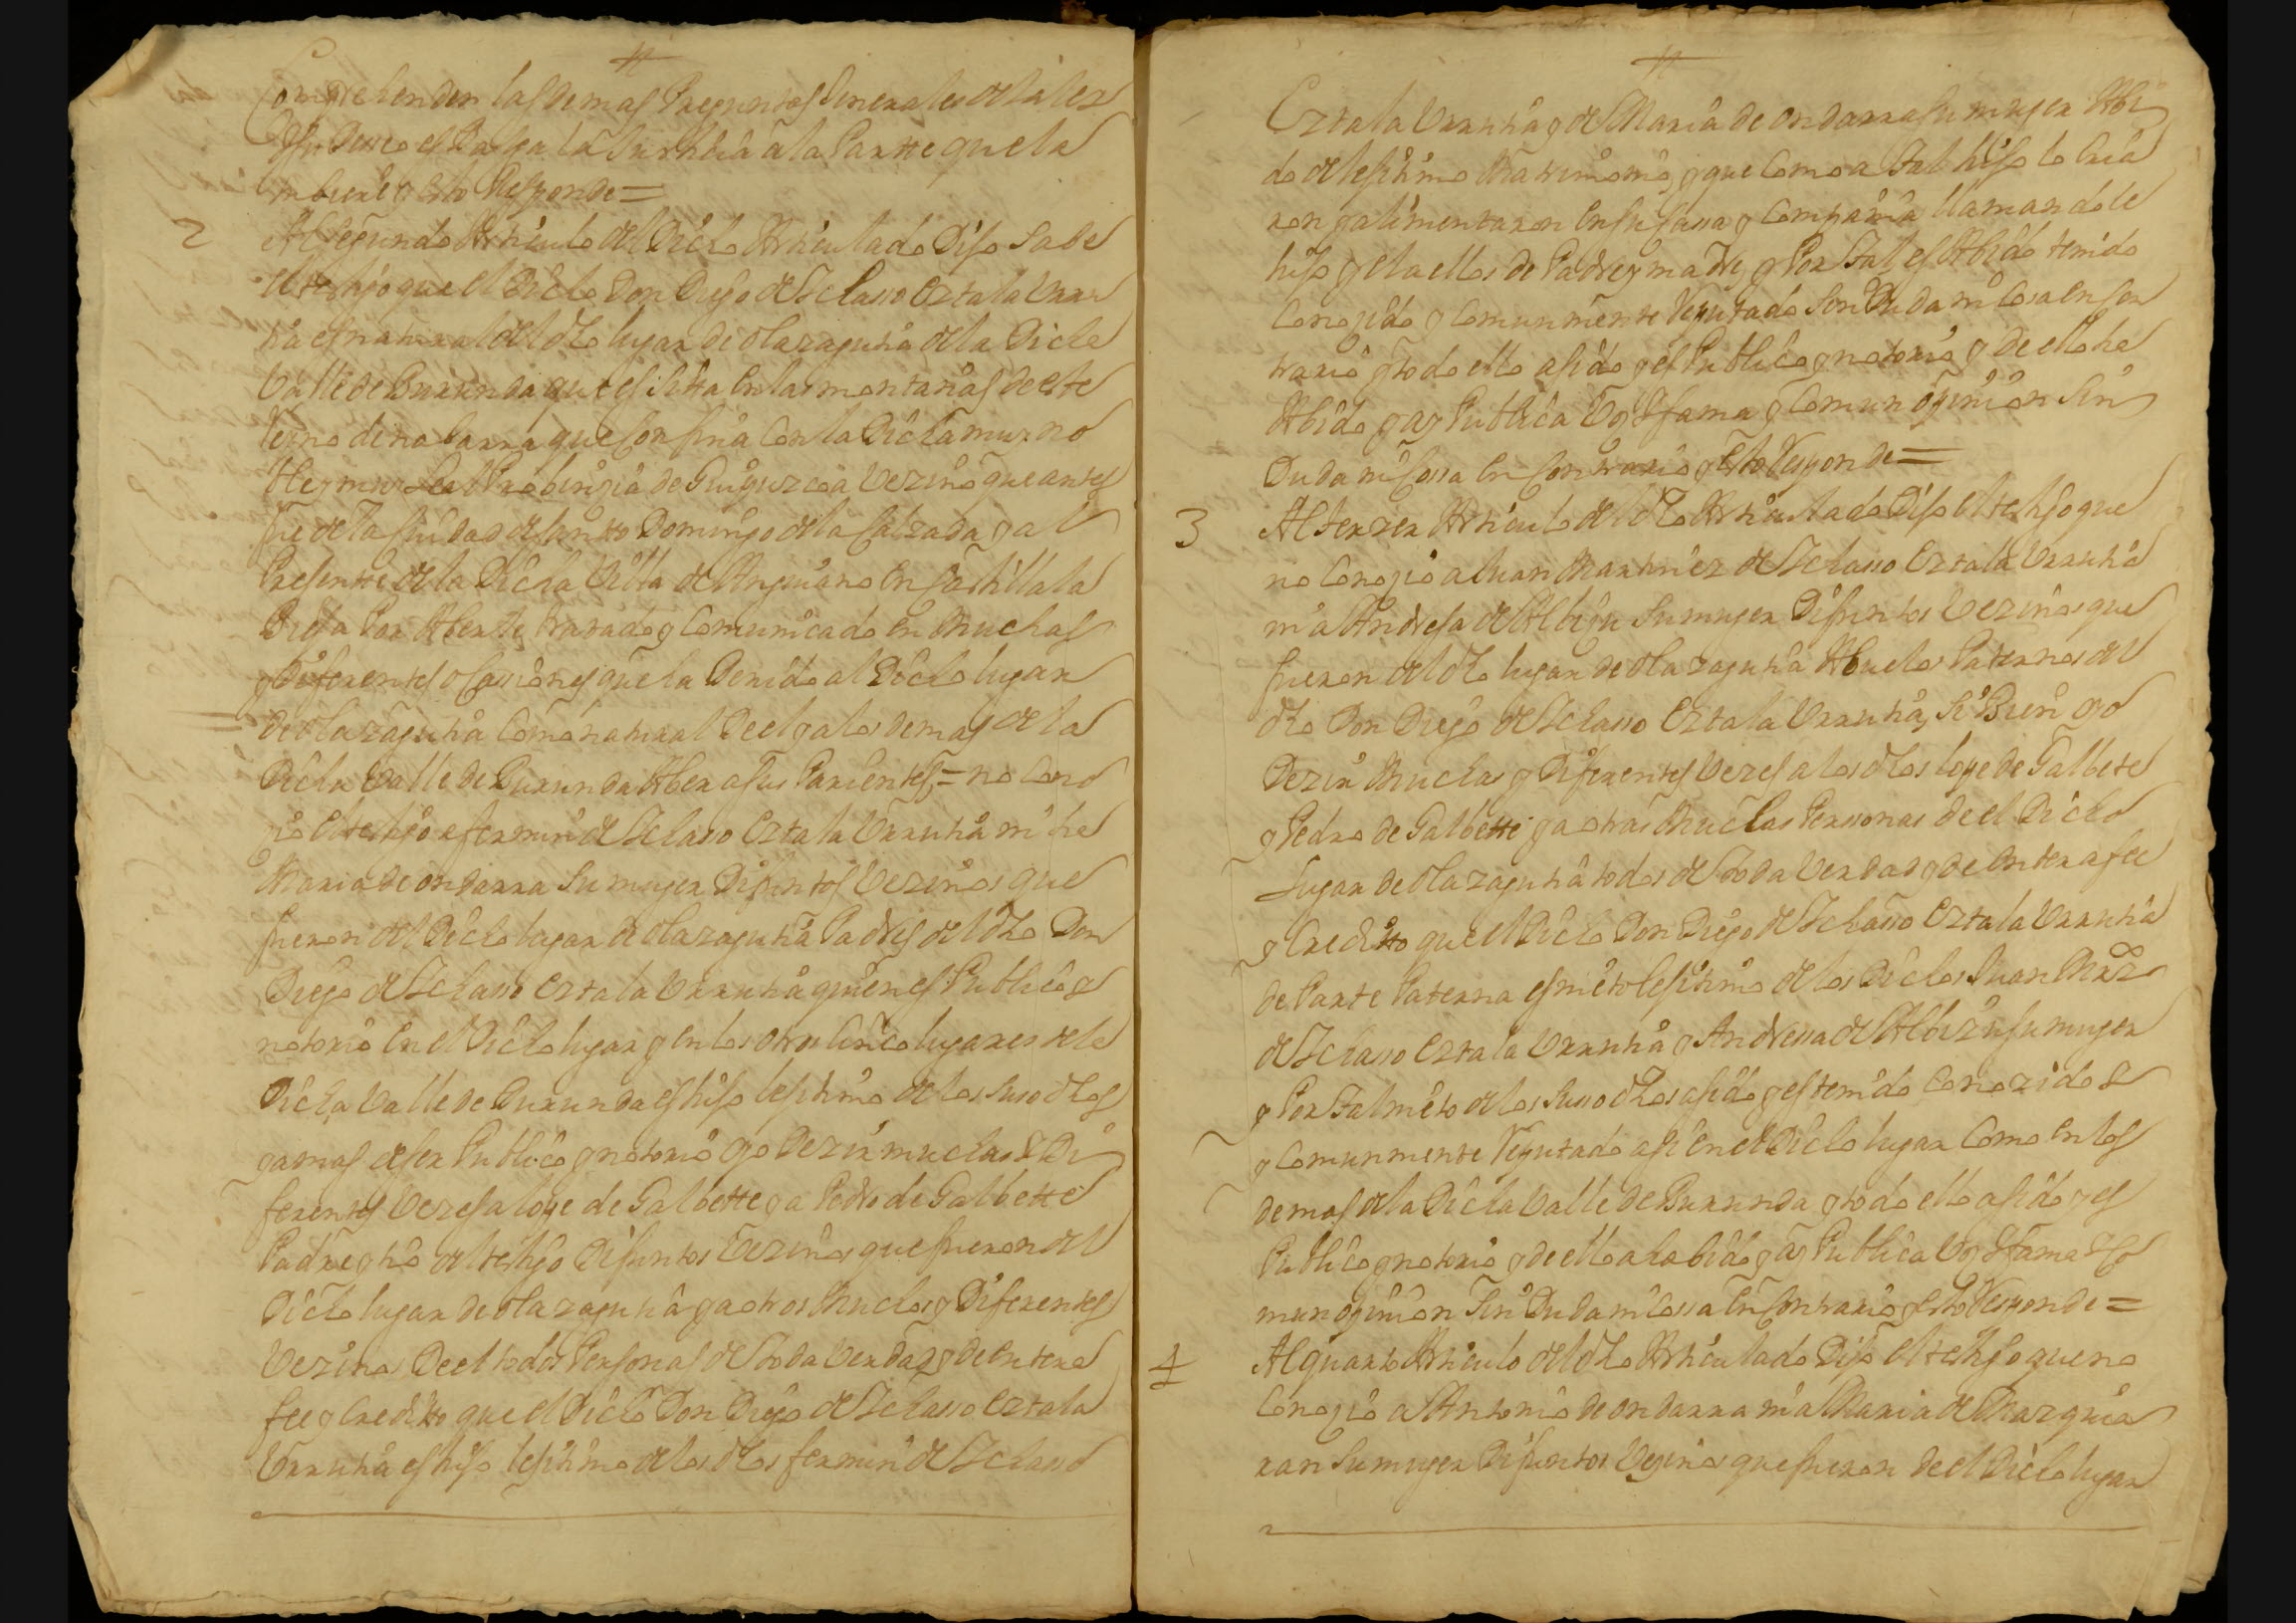 Comprehenden las demas Preguntas Generales de la ley
Su Desseo es Balga la Justicia a la Partte que la
tubiere y esto Responde=
2 Al segundo Articulo del Dicho Articulado Dijo Save
el testigo que el Dicho Don Diego de Ychasso Eztala Urru
tia es natural del dho lugar de olazagutia de la Dicha
Valle de Burunda que esta sitta en las montañas de este
Reyno de nabarra que Confina Con la Dicha muy no
ble y muy Leal Probinzia de Guipuzcoa Vezino que antes
fue de la Ciudad de santto Domingo de la Calzada y al
Presentte de la Dicha Villa de Anguiano en Castilla la
Vieja Por Aberle tratado y Comunicado en Muchas
y Diferentes ocassiones que ha Benido al Dicho lugar
de olazagutia Como natural De el y a los demas de la
Dicha Valle de Burunda A ber a sus Parientes = no Cono
zio el testigo a fermin de Ychasso Eztala Urrutia ni ha
Maria de ondarra Su muger Difuntos Vezinos que
fueron del Dicho lugar de olazagutia Padres del dho Don
Diego de Ychasso Eztala Urrutia quien es Publico y
notorio en el Dicho lugar y en los otros Cinco lugares de la
Dicha Valle de Burunda es hijo lejitimo de los Susodhos
y a mas de ser Publico y notorio oyo Dezir muchas y Di
ferentes Vezes a lope de Galbette y a Pedro de Galbette
Padre y tio del testigo Difuntos Vezinos que fueron del
Dicho lugar de olazagutia y a otros Muchos y Diferentes
Vezinos De el todos Personas de toda Verdad y de entera
fee y Creditto que el Dicho Don Diego de Ychasso Eztala
Urrutia es hijo lejitimo de los dhos fermin de Ychasso
Eztala Urrutia y de Maria de ondarra Su muger Abi
do de lejitimo Matrimonio y que Como a tal hijo lo Cria
ron y alimentaron en su Cassa y Compañia llamandole
hijo y el a ellos de Padre y madre y Por tal es Abido tenido
Conozido y Comunmente Reputado Sin Duda ni Cosa en Con
trario y todo ello a sido y es Publico y notorio y de ello ha
Abido y ay Publica Voz y fama y Comun opinion Sin
Duda ni Cossa en Contrario y Esto Responde=
3 Al terzer Articulo del dho Articulado Dijo el testigo que
no Conozio a Juan Martinez de Ychasso Eztala Urrutia
ni a Andresa de Albizu Su muger Difuntos Vezinos que
fueron del dho lugar de olazagutia Abuelos Paternos del
dho Don Diego de Ychasso Eztala Urrutia, Si Bien oyo
Dezir Muchas y Diferentes Vezes a los dhos lope de Galbete
y Pedro de Galbette y a otras Muchas Perssonas de el Dicho
Lugar de olazagutia todos de toda Verdad y de entera fee
y Creditto que el Dicho Don Diego de Ychasso Eztala Urrutia
de Parte Paterna es nieto lejitimo de los Dichos Juan Mrz
de Ychasso Eztala Urrutia y Andressa de Albizu su muger
y Por tal nieto de los Susodhos a sido y es tenido Conozido
y Comunmente Reputado asi en el Dicho lugar Como en los
demas de la Dicha Valle de Burunda y todo ello a sido y es
Publico y notorio y de ello a habido y ay Publica Voz y fama y Co
mun opinion Sin Duda ni Cossa en Contrario y esto Responde=
4 Al quarto Articulo del dho Articulado Dijo el testigo que no
Conozio a Antonio de ondarra ni a Maria de Mazquia
ran Su muger Difuntos Vezinos que fueron de el Dicho lugar